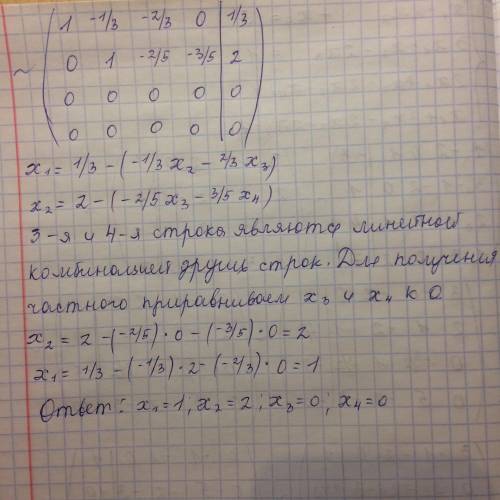 1 -1/3 -2/3 0 1/3
~ 0 1 -2/5 -3/5 2
0 0 0 0 0
0 0 0 0 0
x₁ = 1/3 - (-1/3 x₂ - 2/3 x₃)
x₂ = 2 - (-2/5 x₃ - 3/5 x₄)
3-я и 4-я строка являются линейной
комбинацией других строк. Для получения
частного приравниваем x₃ и x₄ к 0
x₂ = 2 - (-2/5) · 0 - (-3/5) · 0 = 2
x₁ = 1/3 - (-1/3) · 2 - (-2/3) · 0 = 1
Ответ: x₁ = 1; x₂ = 2; x₃ = 0; x₄ = 0